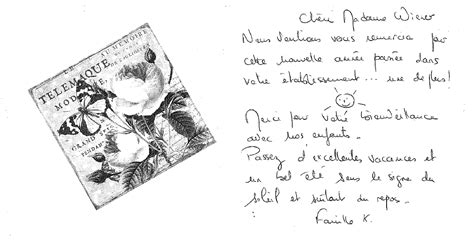 AU MEMOIRE
TELEMAQUE
MOD
GRAND
PENDANT
Chère Madame Wiener
Nous tenions vous remercier pour
cette nouvelle année passée dans
votre établissement... une de plus!
Merci pour votre bienveillance
avec nos enfants.
Passez d'excellentes vacances et
un bel été sous le signe du
soleil et surtout du repos.
Famille K.